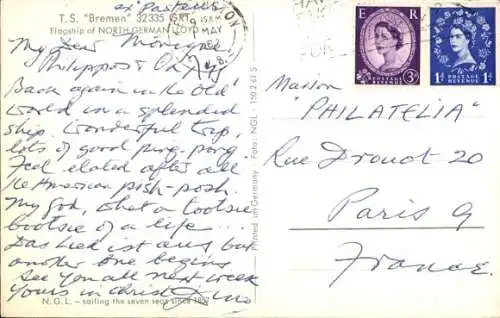 T.S. "Bremen" 32335 GRT
Flagship of NORTH GERMAN LLOYD
MAY
My dear
Philippos &
Back again in the Old
World in a splendid
ship. Wonderful trip,
lots of good ping-pong
Feel elated after all
the American pish-posh.
My God, what a tootsie
bootsie of a life...
Das Lied ist aus but
another one begins
See you all next week
Yours in Christ
N.G.L. – sailing the seven seas since 1857
Printed in Germany Foto: NGL - 150 2 61 S
E R
POSTAGE
REVENUE
3D
POSTAGE
REVENUE
1D 1D
Maison
"PHILATELIA"
Rue Drouot 20
Paris 9
France